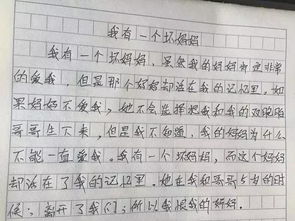 我有一个坏妈妈
我有一个坏妈妈，虽然我的妈妈也非常
的爱我，但是那个妈妈却活在我的记忆里，如
果妈妈不爱我，她不会选择把我和我的双胞胎
哥哥生下来，但是我不知道，我的妈妈为什么
不能一直爱我。我有一个坏妈妈，而这个妈妈
却活在了我的记忆里。她在我和哥哥5岁的时
候，离开了我们，所以我恨我的妈妈。